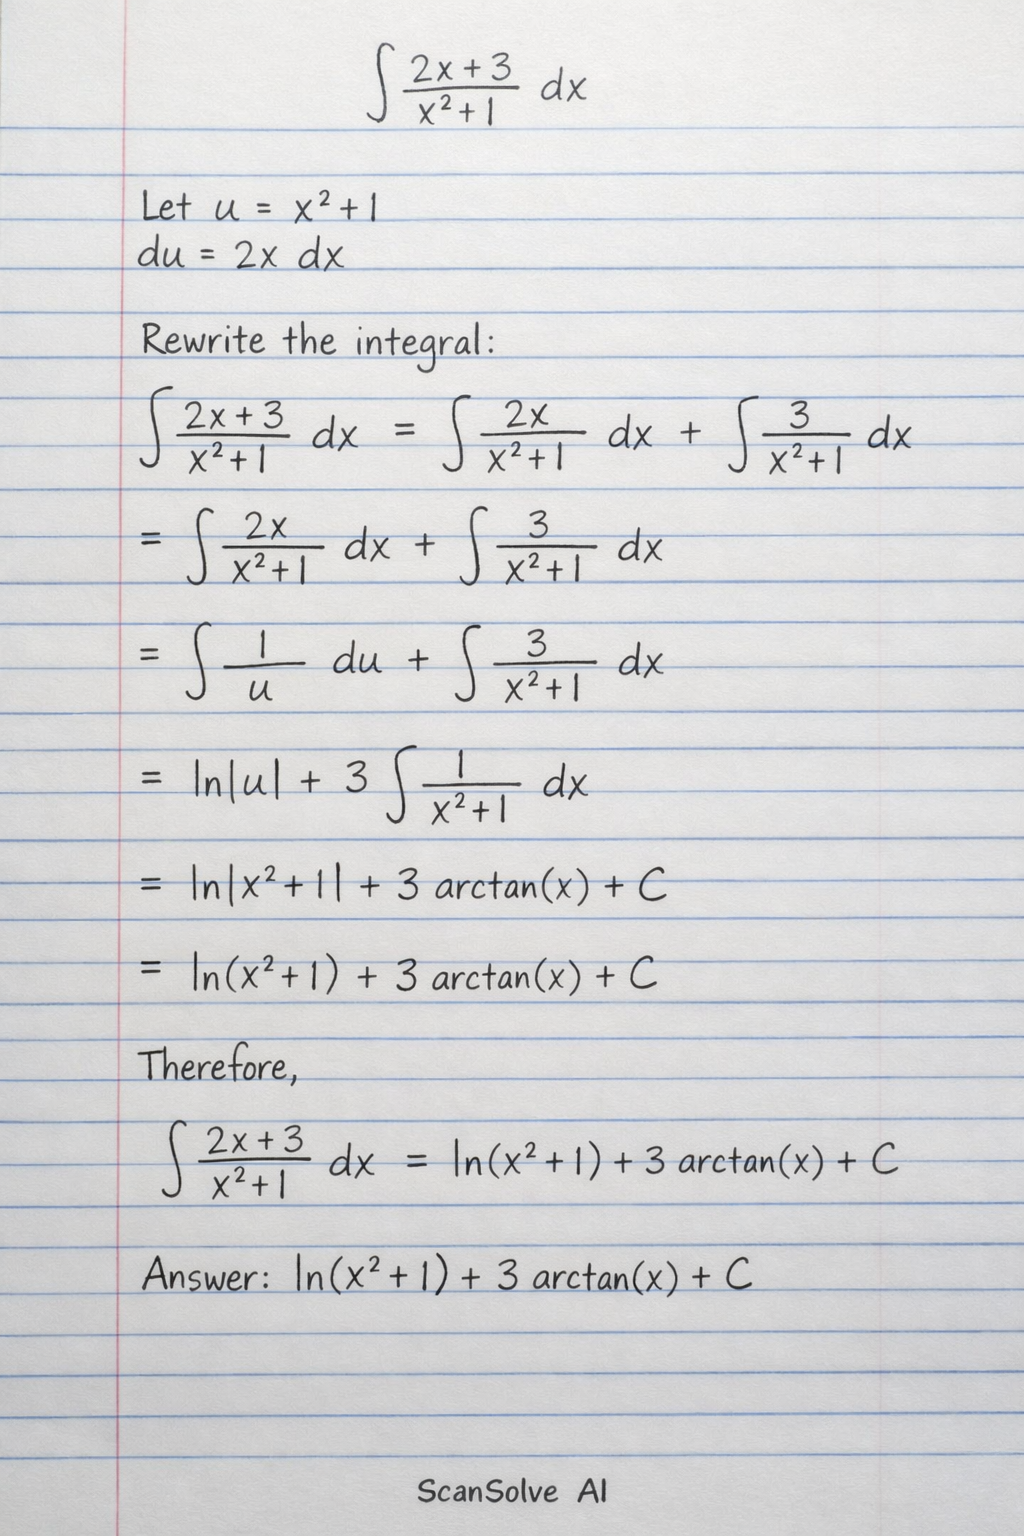 ∫ (2x + 3)/(x² + 1) dx
Let u = x² + 1
du = 2x dx
Rewrite the integral:
∫ (2x + 3)/(x² + 1) dx = ∫ 2x/(x² + 1) dx + ∫ 3/(x² + 1) dx
= ∫ 2x/(x² + 1) dx + ∫ 3/(x² + 1) dx
= ∫ 1/u du + ∫ 3/(x² + 1) dx
= ln|u| + 3 ∫ 1/(x² + 1) dx
= ln|x² + 1| + 3 arctan(x) + C
= ln(x² + 1) + 3 arctan(x) + C
Therefore,
∫ (2x + 3)/(x² + 1) dx = ln(x² + 1) + 3 arctan(x) + C
Answer: ln(x² + 1) + 3 arctan(x) + C
ScanSolve AI